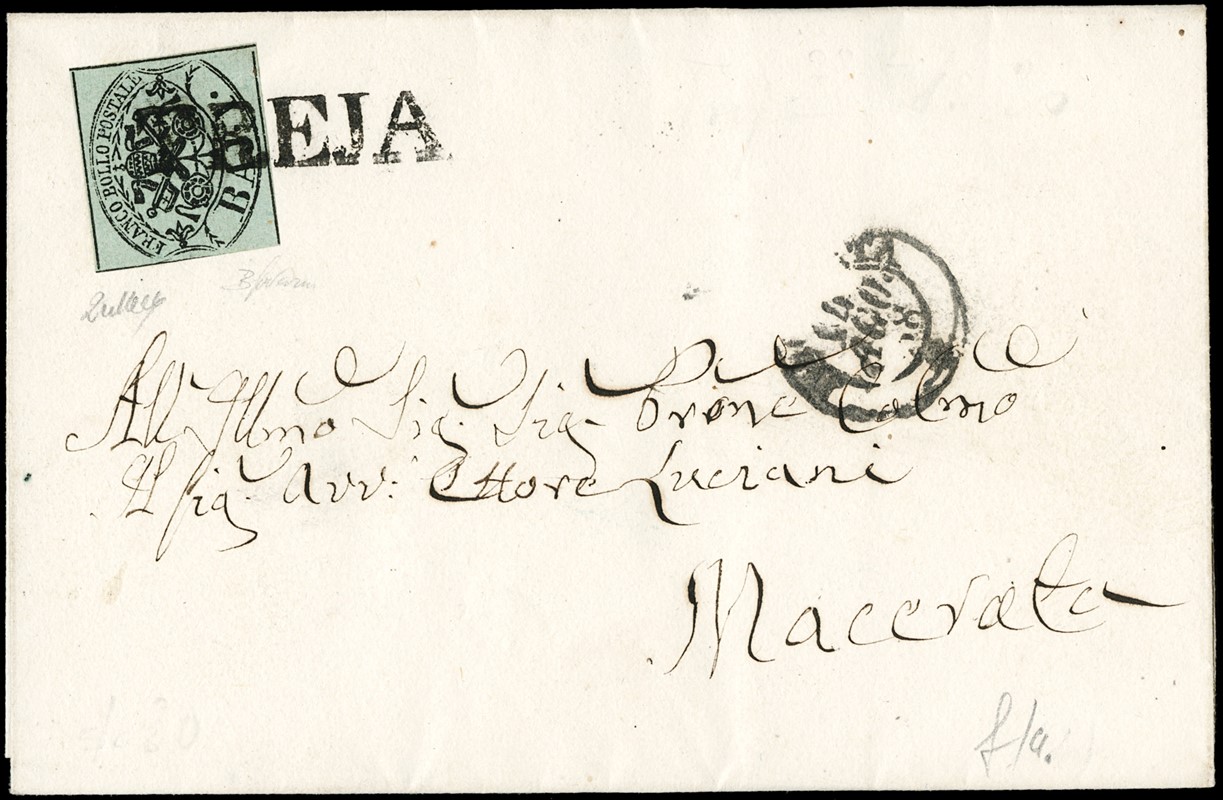 FRANCO BOLLO POSTALE
BAJ
TREJA
14
AGO
58
All Illmo Sig. Sig. Prone Colmo
Il Sig. Avv. Ettore Luciani
Macerata